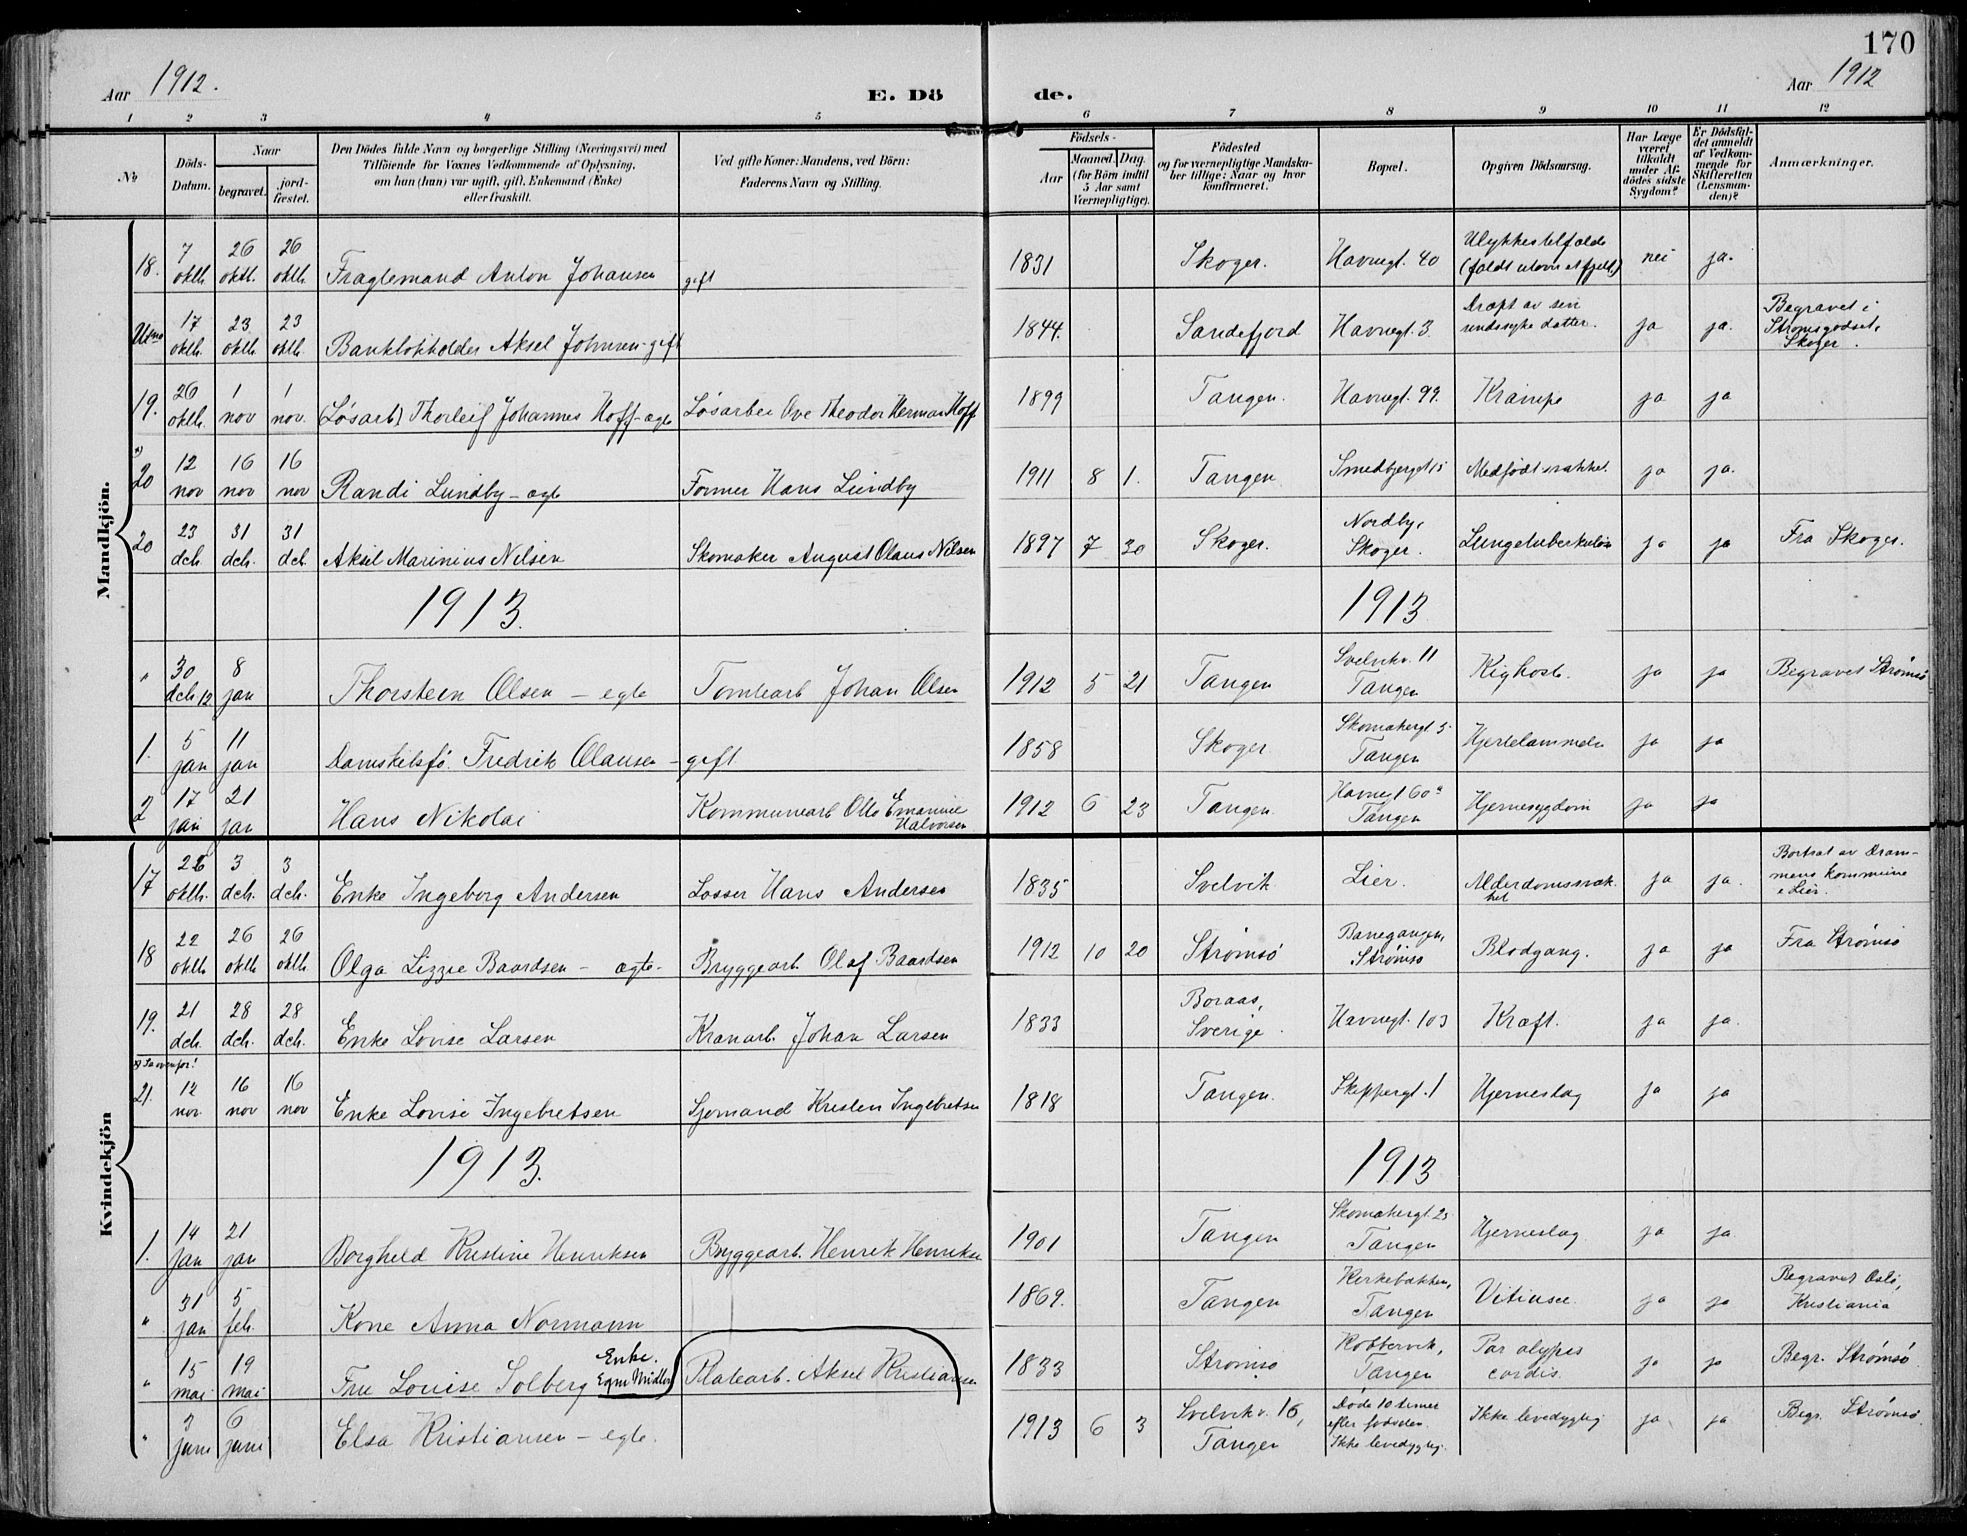 170
Aar 1912.
E. Dö de.
Aar 1912
1 2 3 4 5 6 7 8 9 10 11 12
No
Döds-Datum.
Naar
begravet.
jord-fæstet.
Den Dödes fulde Navn og borgerlige Stilling (Næringsvei) med
Tilföiende for Voxnes Vedkommende af Oplysning,
om han (hun) var ugift, gift, Enkemand (Enke)
eller fraskilt.
Ved gifte Koner: Mandens, ved Börn:
Faderens Navn og Stilling.
Födsels-
Aar
Maaned. Dag.
(for Börn indtil
5 Aar samt
Værnepligtige).
Födested
og for værnepligtige Mandska-
ber tillige: Naar og hvor
konfirmeret.
Bopæl.
Opgiven Dödsaarsag.
Har Læge
været
tilkaldt
under Af-
dödes sidste
Sygdom?
Er Dödsfal-
det anmeldt
af Vedkom-
mende for
Skifteretten
(Lensman-
den)?
Anmærkninger.
Mandkjön.
18. 7 oktb. 26 oktb. 26 oktb. Fragtemand Anton Johansen gift 1831 Skoger. Havnegt. 40 Ulykkestilfælde (faldt utover et fjeld) nei ja.
17 oktb. 23 oktb. 23 oktb. Aksel Johnsen - gift 1844. Sandefjord Havnegt. 3. Dræpt av sin sindssyke datter. ja ja. Begravet i Strømsgodset, Skoger.
19. 26 oktb. 1 nov 1 nov. (Løsarb) Thorleif Johannes Hoff - ægte Løsarbei Ove Theodor Herman Hoff 1899 Tangen. Havnegt. 99. Krampe ja ja
x) 20 12 nov 16 nov 16 nov Randi Lundby - ægte Former Hans Lundby 1911 8 1. Tangen Smedbjergt 15 Medfødt svakhet. ja ja.
20 23 dcb. 31 dcb. 31 dcb. Aksel Marinius Nilsen Skomaker August Olaus Nilsen 1897 7 30 Skoger. Nordby, Skoger. Lungetuberkulose ja ja Fra Skoger.
1913. 1913.
" 30 dcb. 12 8 jan Thorsteen Olsen - egte Tomtearb Johan Olsen 1912 5 21 Tangen Svelvikv. 11 Tangen Kighoste. ja ja Begravet Strømsø
1. 5 jan 11 jan Fredrik Olausen - gift 1858 Skoger Skomakergt 5 Tangen ja ja
2 17 jan 21 jan Hans Nikolai Kommunearb Otto Emanuel Halvorsen 1912 6 23 Tangen. Havnegt 60a Tangen Hjernesygdom ja ja
Kvindekjön
17 26 oktb. 3 dcb. 3 dcb. Enke Ingeborg Andersen Losser Hans Andersen 1835 Svelvik Lier. Alderdomssvakhet ja ja. Bortsat av Drammens kommune i Lier.
18 22 oktb 26 oktb 26 oktb. Olga Lizzie Baardsen - ægte - Bryggearb. Olaf Baardsen 1912 10 20 Strømsø Banegangen, Strømsø Blodgang. ja ja Fra Strømsø
19. 21 dcb. 28 dcb. 28 dcb. Enke Lovise Larsen Kranarb. Johan Larsen 1833 Boraas, Sverige. Havnegt. 103 Kræft. ja ja.
x) Se ovenfor!
21. 12 nov. 16 nov 16 nov Enke Lovise Ingebretsen Sjømand Kristen Ingebretsen 1818 Tangen. Skippergt. 1 Hjerneslag ja ja
1913. 1913
1. 14 jan 21 jan Borghild Kristine Henriksen Bryggearb. Henrik Henriksen 1901 Tangen Skomakergt. 25 Tangen Hjerneslag. ja ja
" 31 jan 5 feb. Kone Anna Normann 1869. Tangen Kirkebakken, Tangen ja ja Begravet Oslo, Kristiania
" 15 mai 19 mai Fru Louise Solberg Enke. Egne Midler 1833 Strømsø Kobbervik, Tangen Paralypis cordis. ja ja Begr. Strømsø.
" 3 juni 6 juni Elsa Kristiansen - egte. Platearb. Aksel Kristiansen 1913 6 3 Svelvikv. 16, Tangen Døde 10 timer efter fødselen. Ikke levedygtig. Ikke levedygtig ja ja Begr. Strømsø.